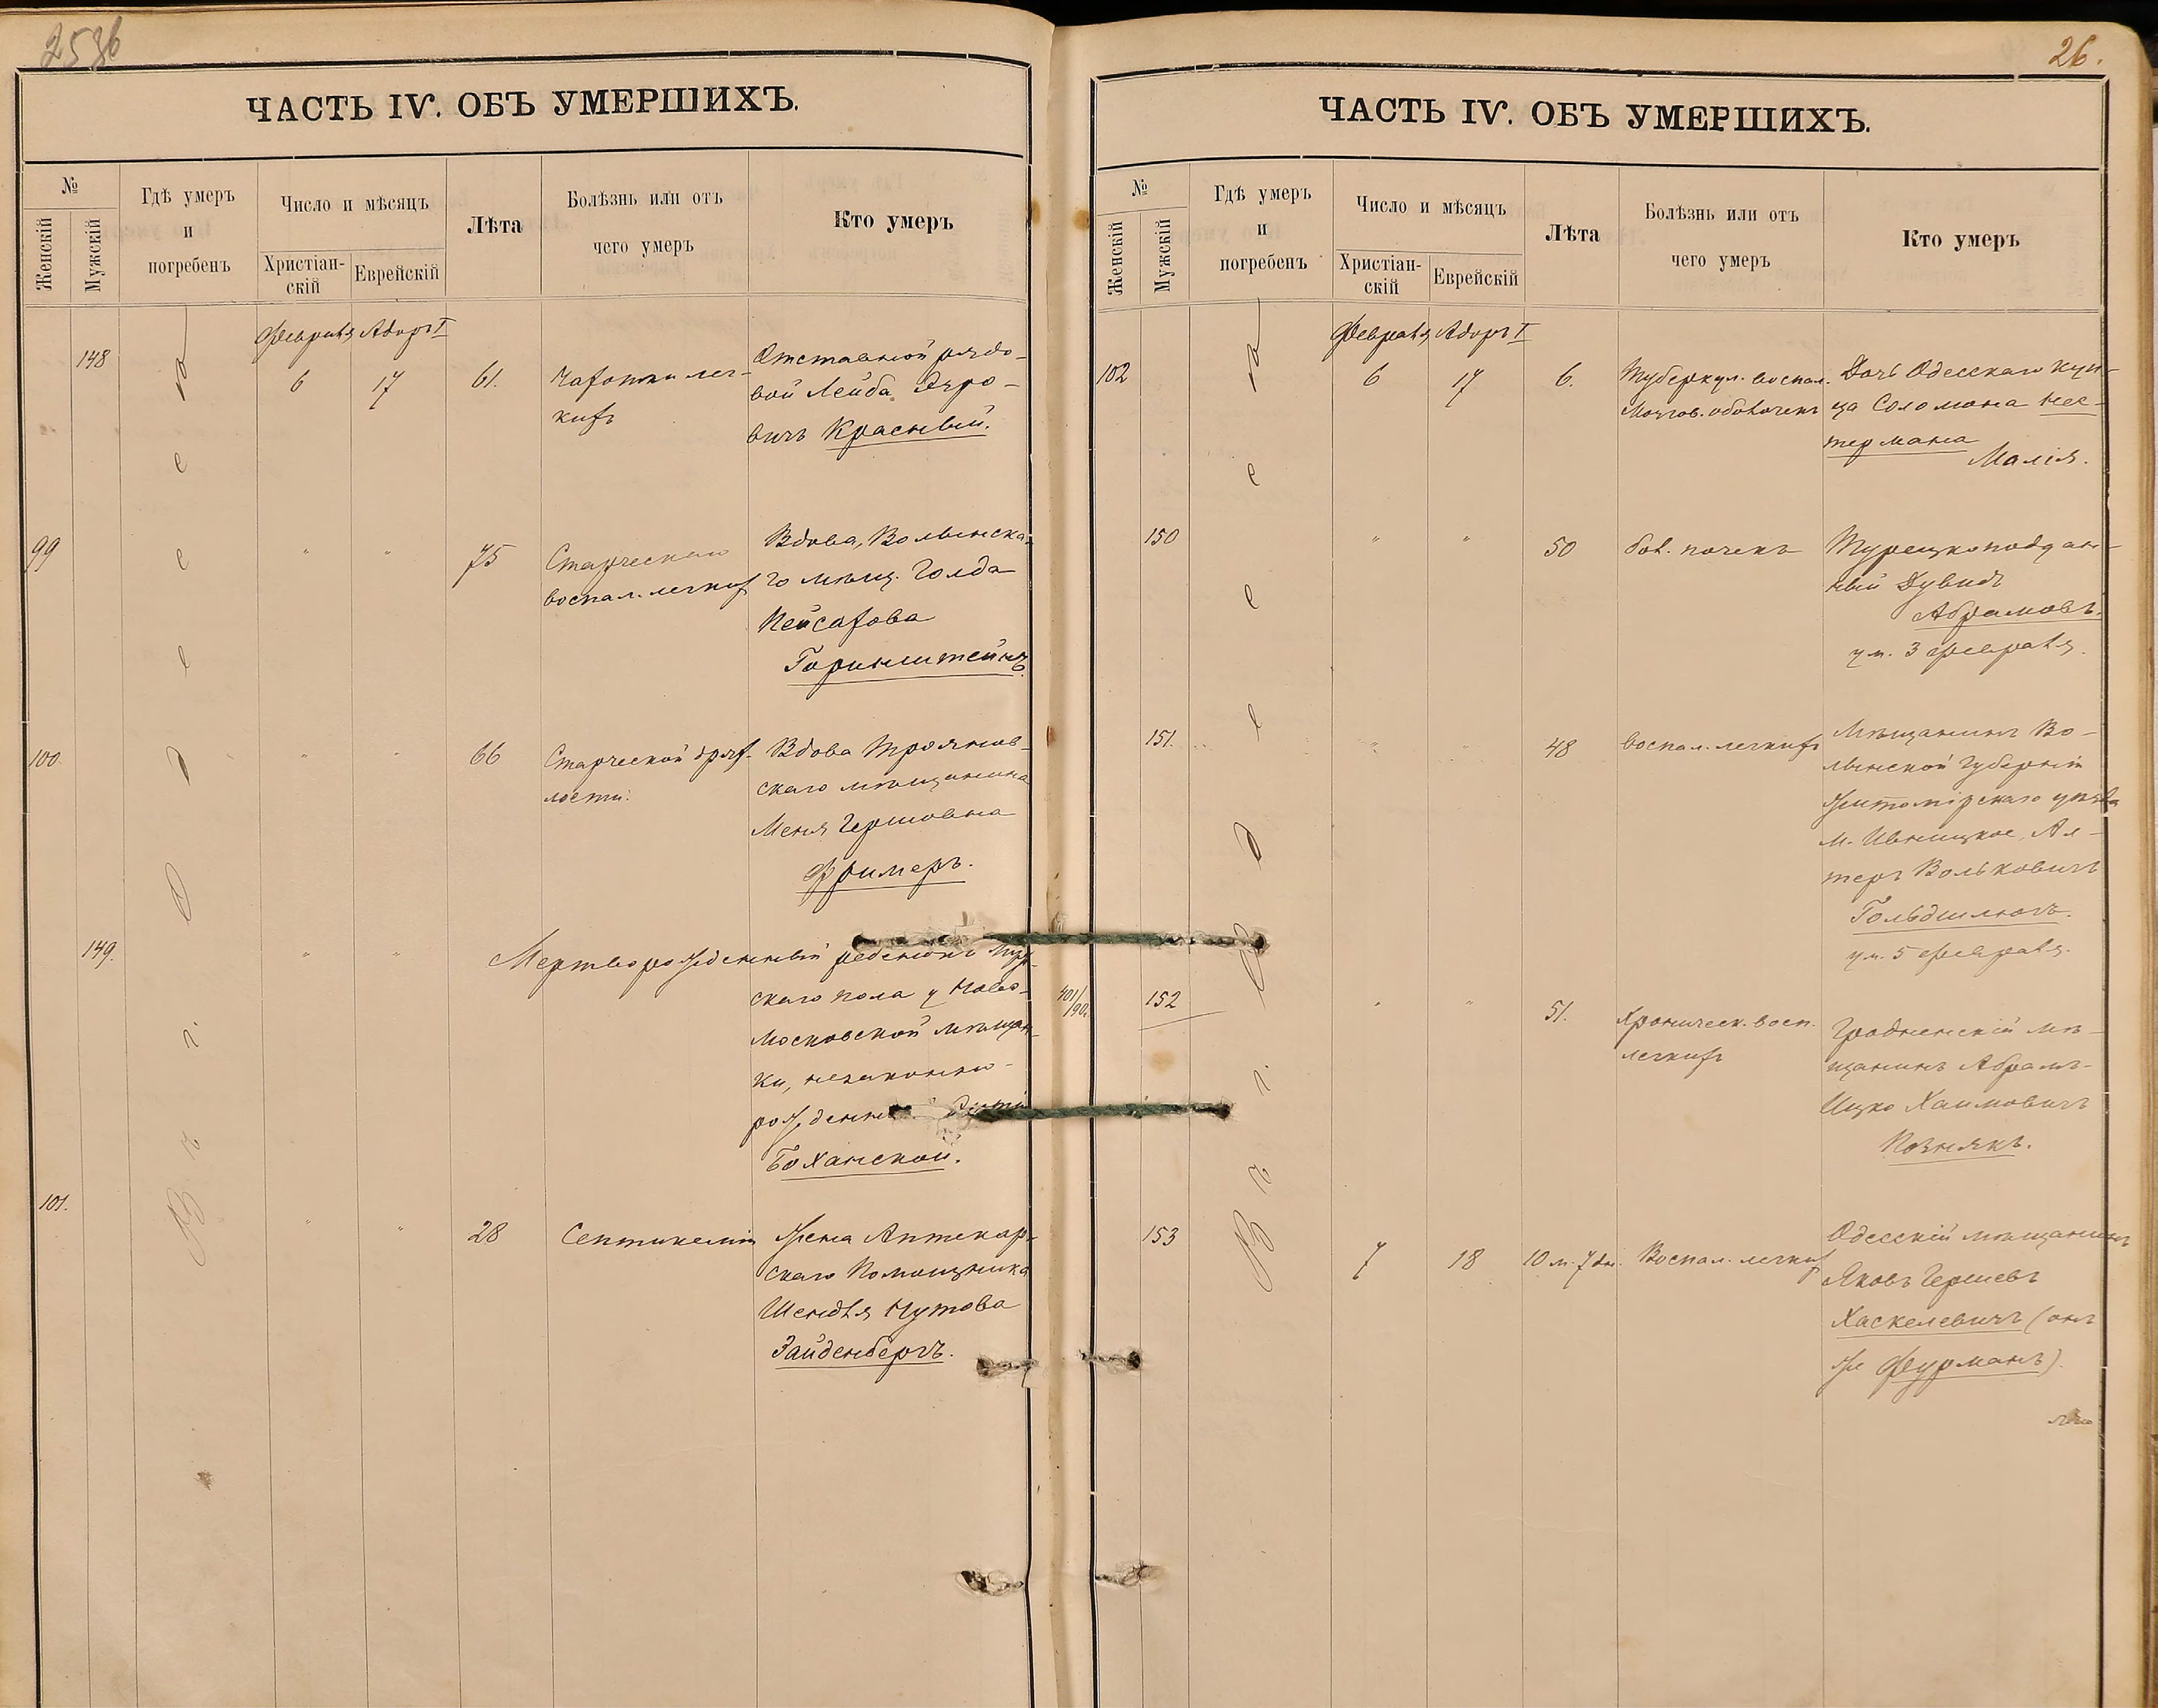 26.
ЧАСТЬ IV. ОБЪ УМЕРШИХЪ.
№
Женскій
Мужскій
Гдѣ умеръ
и
погребенъ
Число и мѣсяцъ
Христіан-
скій
Еврейскій
Лѣта
Болѣзнь или отъ
чего умеръ
Кто умеръ
Въ г. Одессѣ
Февраля Адаръ I
148
6
17
61.
Чахотки лег-
кихъ
Отставной рядо-
вой Лейба
вичъ Красный.
99
"
"
75
Старческаго
воспал. легких
Вдова, Волынска-
го мѣщ. Голда
Пейсахова
Горинштейнъ.
100.
"
"
66
Старческой дрях-
лости.
Вдова Трояновс-
скаго мѣщанина
Меня Гершовна
Фримеръ.
149.
"
"
Мертворожденный ребенокъ Муж-
скаго пола у Ново-
московской мѣщан-
ки, незаконно-
рожденный
Боханской.
101.
"
"
28
Септикеміи
Жена Аптекар-
скаго Помощника
Шендля Нутова
Зайденбергъ.
ЧАСТЬ IV. ОБЪ УМЕРШИХЪ.
№
Женскій
Мужскій
Гдѣ умеръ
и
погребенъ
Число и мѣсяцъ
Христіан-
скій
Еврейскій
Лѣта
Болѣзнь или отъ
чего умеръ
Кто умеръ
Въ г. Одессѣ
Февраля Адаръ I
102
6
17
6.
Туберкул. воспал.
Мозгов. оболочекъ
Дочь Одесскаго куп-
ца Соломона Нес-
термана
Малія.
150
"
"
50
бол. почекъ
Турецкоподдан-
ный Дувидъ
Абрамовъ.
ум. 3 февраля.
151.
"
"
48
воспал. легкихъ
Мѣщанинъ Во-
лынской Губерніи
Житомірскаго уѣзда
м. Ивницкое, Ал-
теръ Вольковичъ
ум. 5 февраля.
401/90.
152
"
"
51.
Хроническ. восп.
легкихъ
Гродненскій мѣ-
щанинъ Абрамъ-
Ицко Хаимовичъ
Познякъ.
153
7
18
10 м. 7 дн.
Воспал. легких
Одесскій мѣщанинъ
Яковъ Гершевъ
Хаскелевичъ (онъ
же Фурманъ).